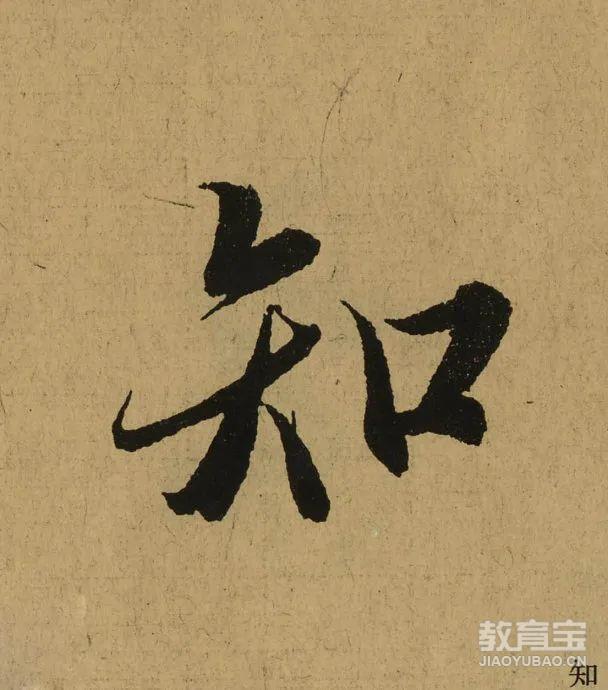 知
教育宝
JIAOYUBAO.CN
知